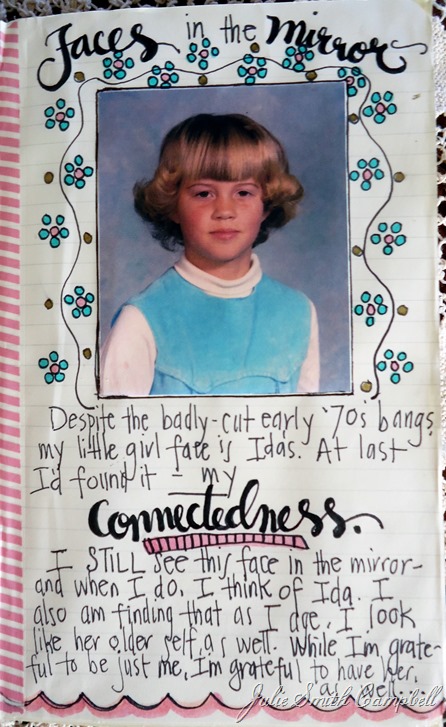 Faces in the Mirror
Despite the badly-cut early '70s bangs,
my little girl face is Idas. At last
I'd found it - my
Connectedness.
I STILL see this face in the mirror-
and when I do, I think of Ida. I
also am finding that as I age, I look
like her older self, as well. While I'm grate-
ful to be just me, I'm grateful to have her,
as well...
Julie Smith Campbell